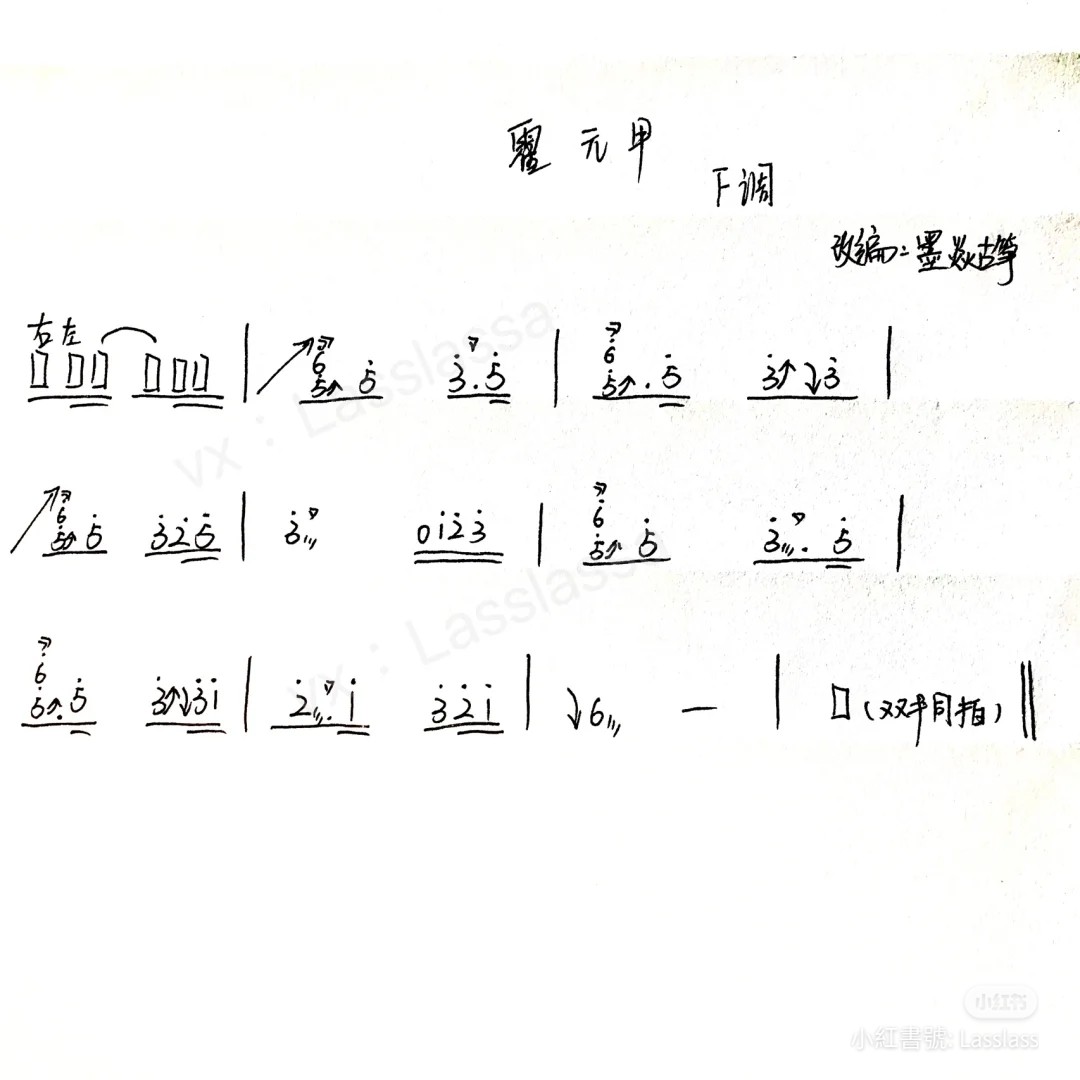 霍元甲
F调
改编:墨焱古筝
右左
▯ ▯▯ ▯▯▯ | ↗ 6̇ 5̇↑ 5̇ 3̇.5̇ | 6̇ 5̇↑.5̇ 3̇↑↓3̇ |
↗ 6̇ 5̇↑ 5̇ 3̇2̇5̇ | 3̇ 01̇2̇3̇ | 6̇ 5̇↑ 5̇ 3̇.5̇ |
6̇ 5̇↑.5̇ 3̇↑↓3̇1̇ | 2̇.1̇ 3̇2̇1̇ | ↓6 — | ▯(双手同拍)‖
vx:Lasslassa
vx:Lasslassa
小红书
小紅書號: Lasslass